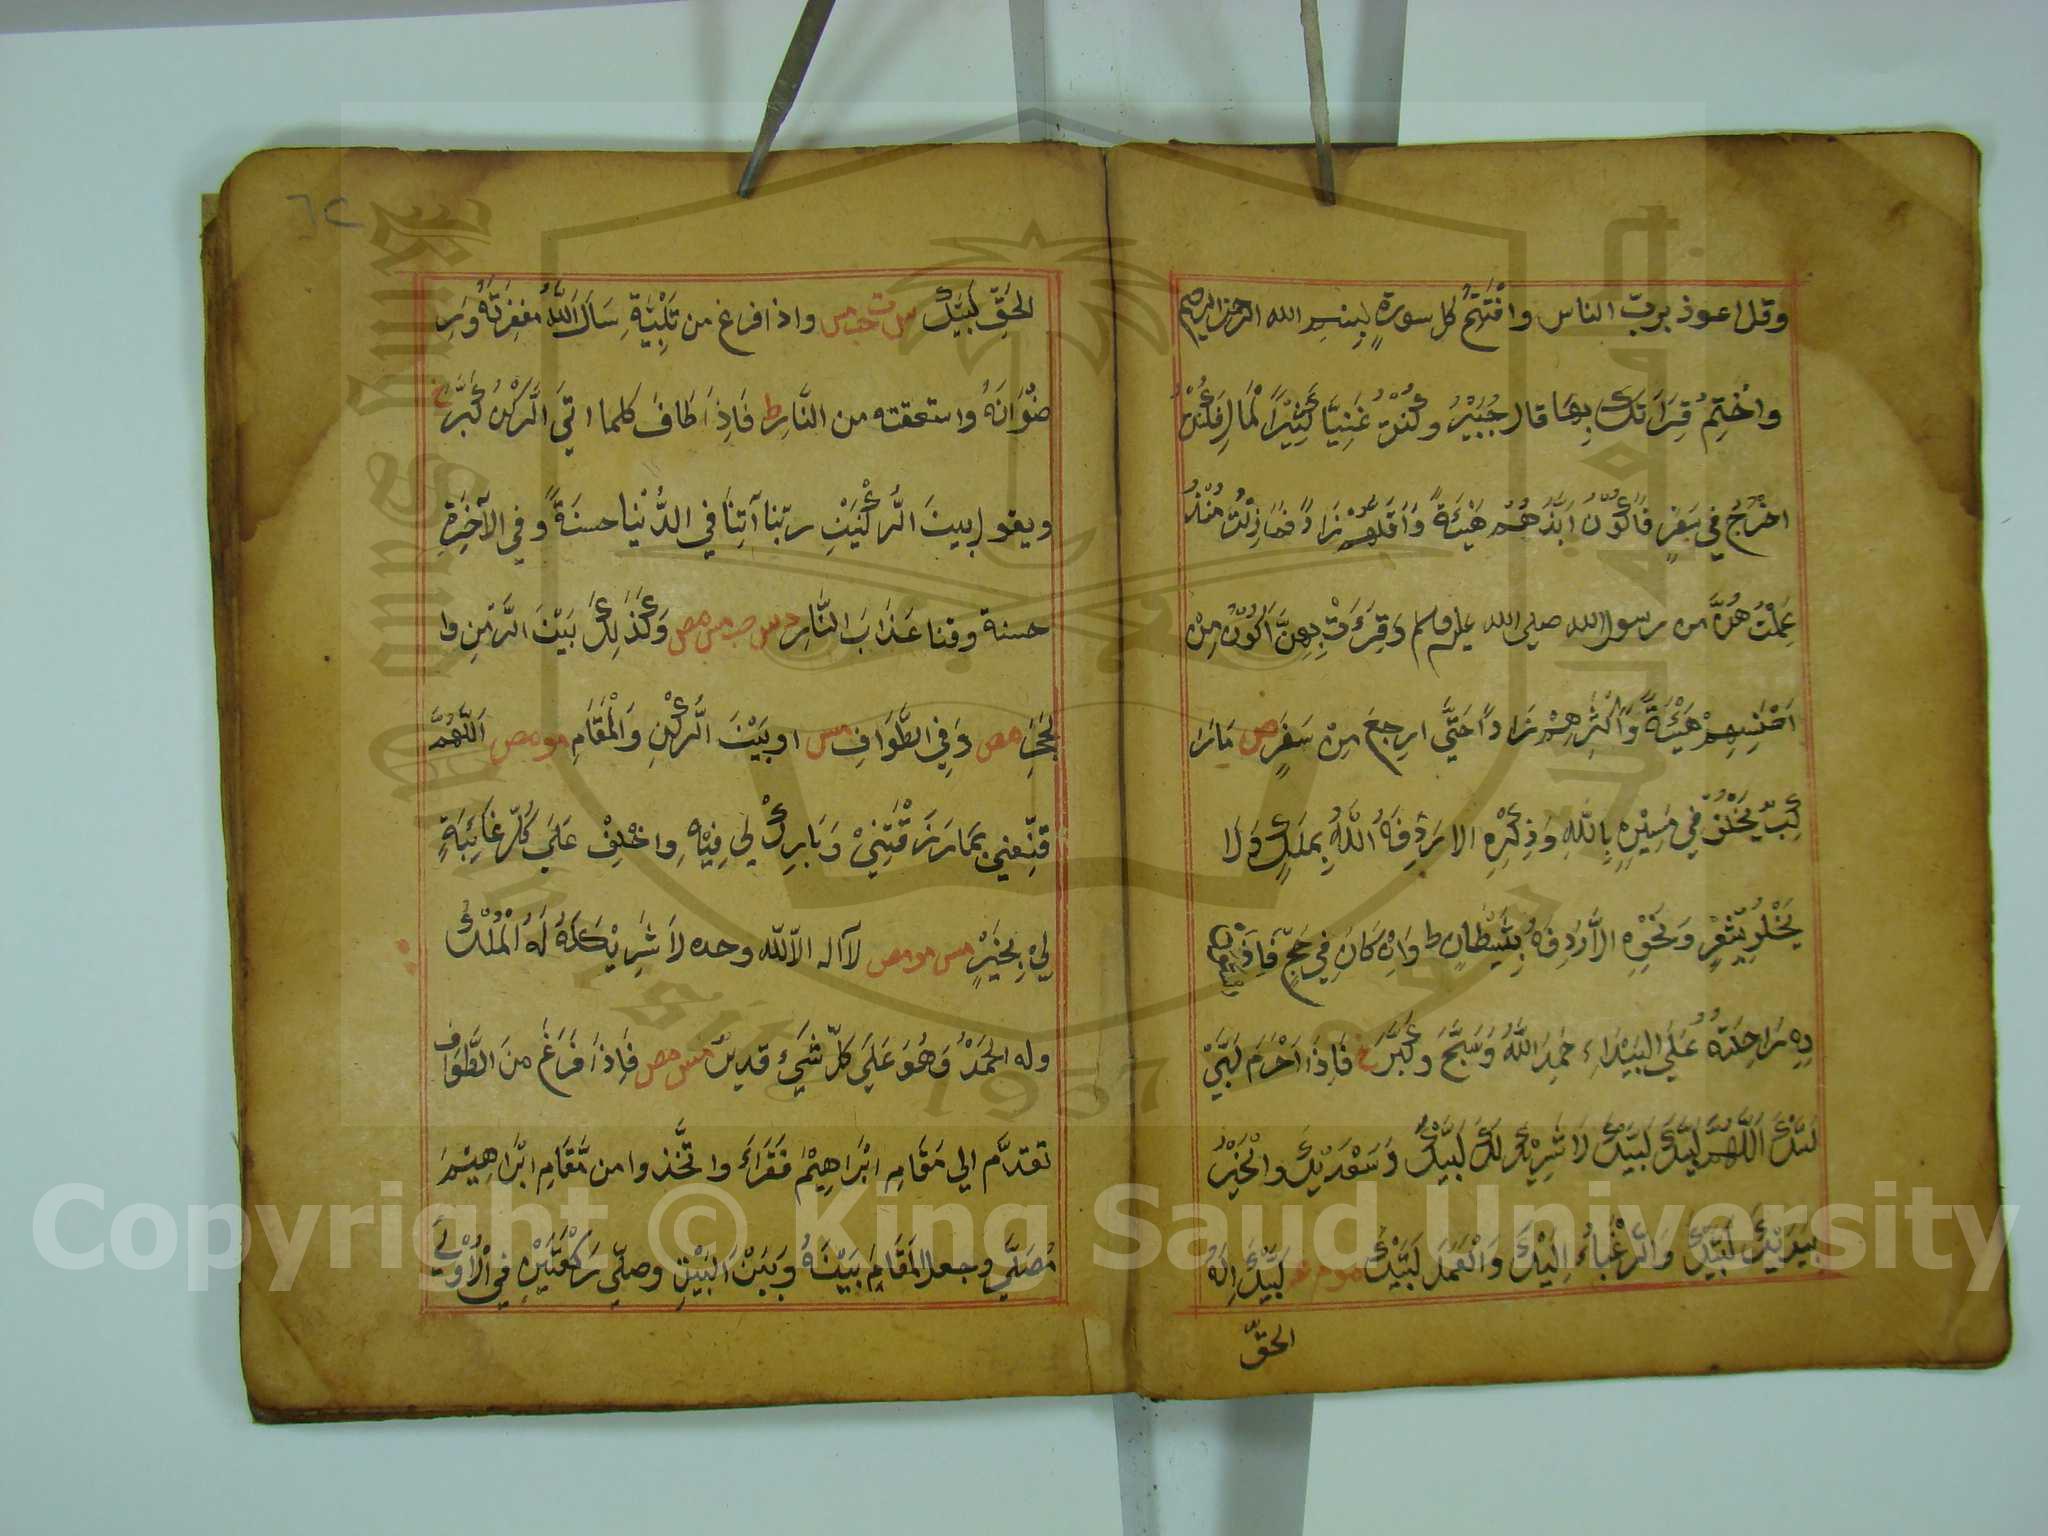 وقل اعوذ برب الناس وافْتَتِحْ كل سورةٍ بِبسمِ الله الرحمن الرحيم
واخْتِمْ قِرَاَتَكَ بِهَا قال جُبَيْرُ وَكُنْتُ غَنِيًّا كَثِيْرًا لْمَالِ فَكُنْتُ
اخْرُجُ فِي سَفَرٍ فَاَكُوْنُ اَبَذَّهُمْ هَيْئَةً وَاَقَلَّهُمْ زَادًا فَمَا زِلْتُ مُنْذُ
عَلِمْتُ هُنَّ من رسول الله صلى الله عليه وسلم وَقَرَءْتُ بِهِنَّ اَكُوْنُ مِنْ
اَحْسَنِهِمْ هَيْئَةً وَاَكْثَرِهِمْ زَادًا حَتَّى ارجعَ مِنْ سَفَرٍ ص مَا رَا
كِبٌ يَخْلُوْ فِي مَسِيْرِهِ بِاللهِ وَذِكْرِهِ الا رَدِفَهُ اللهُ بِمَلَكٍ وَلَا
يَخْلُوْ بِشِعْرٍ وَنَحْوِهِ اِلَّا رَدِفَهُ بِشَيْطَانٍ ط وَاِنْ كَانَ فِي حَجٍّ فَاِذَا
بِهِ رَاحِلَتُهُ عَلَى الْبَيْدَاءِ حَمِدَ اللهَ وَسَبَّحَ وَكَبَّرَ خ فَاِذَا اَحْرَمَ لَبَّيْ
لَبَّيْكَ اَللّٰهُمَّ لَبَّيْكَ لَبَّيْكَ لَا شَرِيْكَ لَكَ لَبَّيْكَ وَسَعْدَيْكَ وَالْخَيْرُ
بِيَدَيْكَ لَبَّيْكَ وَالرَّغْبَاءُ اِلَيْكَ وَالْعَمَلُ لَبَّيْكَ لَبَّيْكَ اِلٰهَ
الحقّ
الحَقِّ لَبَّيْكَ س ق حب مس واذا فرغ من تَلْبِيَّةِ سَاَلَ اللهَ مَغْفِرَتَهُ وَرِ
ضْوَانَهُ واستعتقه من النَّارِ ط فَاِذَا طَافَ كلما اتَى الرُّكْنَ كَبَّرَ خ
ويقول بينَ الرُّكْنَيْنِ ربّنا آتِنَا فِي الدُّنْيَا حسنَةً وَّفِي الآخِرَةِ
حسنة وقنا عَذَابَ النَّارِ د س حب مس مص وَكَذَلِكَ بَيْنَ الرُّكْنِ وا
لْحَجَرِ مص وَفِي الطَّوَافِ مس اوبَيْنَ الرُّكْنِ وَالْمَقَامِ مو مص اَللّٰهُمَّ
قَنِّعْنِي بِمَا رَزَقْتَنِيْ وَبَارِكْ لِي فِيْهِ وَاخْلِفْ عَلَى كُلِّ غَائِبَةٍ
لِيْ بِخَيْرٍ مس مو مص لاآله الاّ الله وحده لَا شَرِيْكَ لَهُ لَهُ الْمُلْكُ
وله الحَمْدُ وَهُوَ عَلَى كلّ شَيْءٍ قدير مس مص فَاِذَا فَرَغَ مِنَ الطَّوَافِ
تقدّم الي مَقَامِ اِبْرَاهِيْمَ فَقَرَاءَ واتَّخذوا من مَّقَامِ ابْرَاهِيْمَ
مُصَلَّي وجعل المَقَامَ بَيْنَهُ وَبَيْنَ الْبَيْتِ وصلّي رَكْعَتَيْنِ فِي الْاُوْلٰي
Copyright © King Saud University
1957